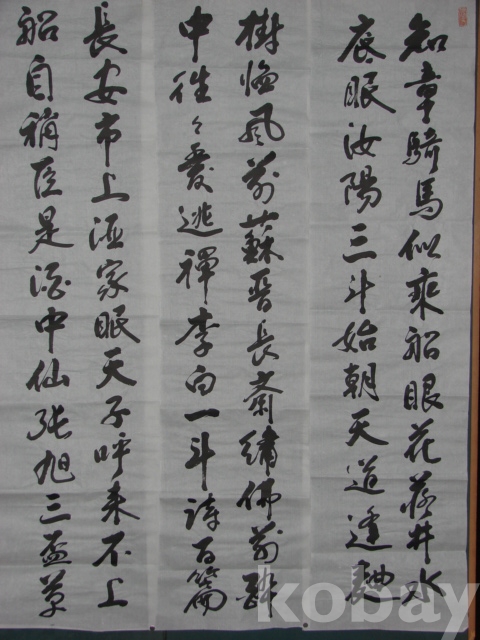 知章騎馬似乘船眼花落井水
底眠汝陽三斗始朝天道逢麯
樹臨風前蘇晉長齋繡佛前醉
中往々愛逃禪李白一斗詩百篇
長安市上酒家眠天子呼来不上
船自稱臣是酒中仙張旭三盃草
kobay